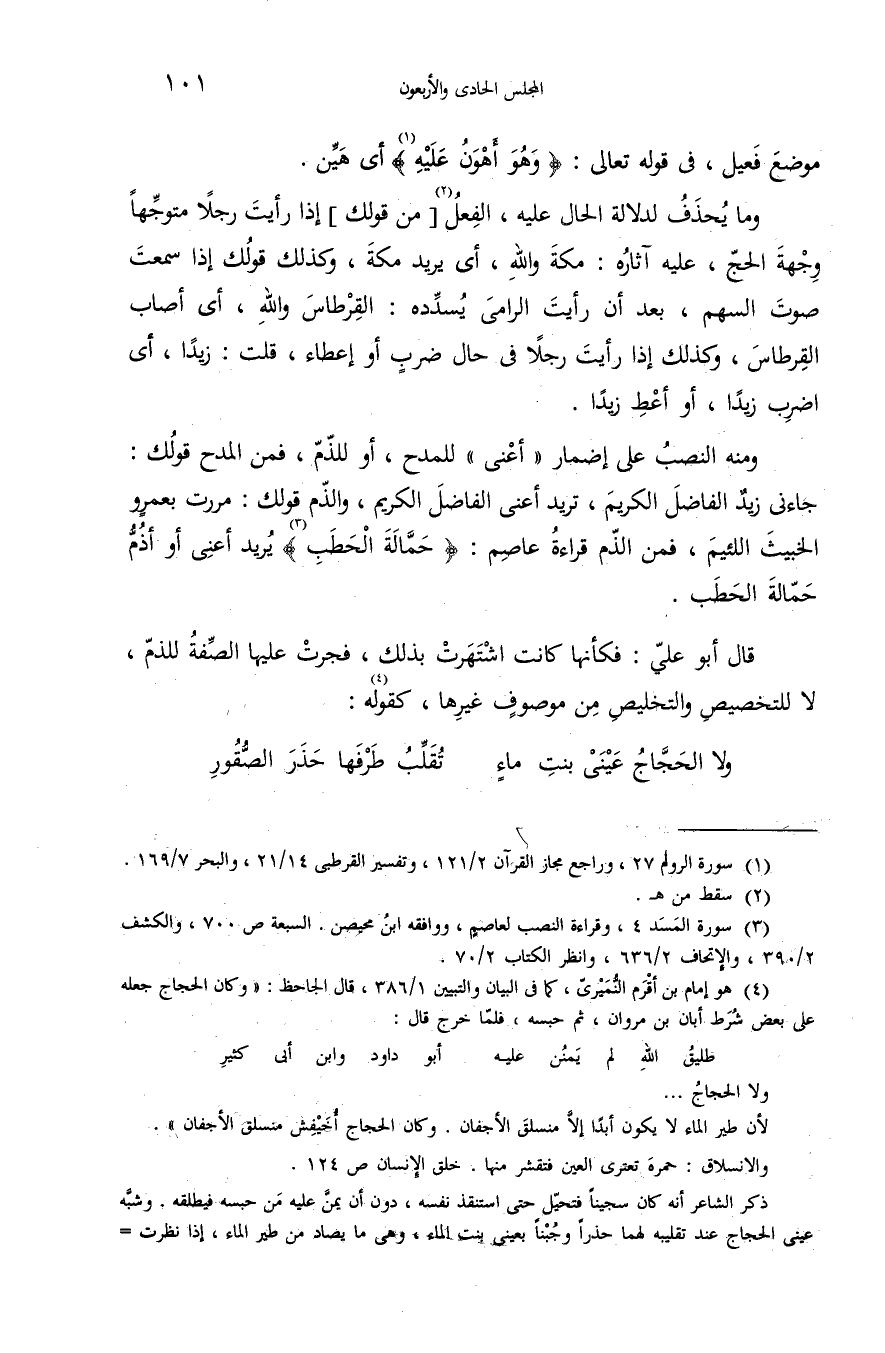 المجلس الحادى والأربعون ١٠١
موضعَ فَعيل ، فى قوله تعالى : ﴿ وَهُوَ أَهْوَنُ عَلَيْهِ ﴾(١) أى هَيِّن .
وما يُحذَفُ لدلالة الحال عليه ، الفِعلُ(٢) [ من قولك ] إذا رأيتَ رجلًا متوجِّهاً
وِجْهةَ الحجّ ، عليه آثارُه : مكةَ واللهِ ، أى يريد مكةَ ، وكذلك قولُك إذا سمعتَ
صوتَ السهم ، بعد أن رأيتَ الرامىَ يُسدِّده : القِرْطاسَ واللهِ ، أى أصاب
القِرطاسَ ، وكذلك إذا رأيتَ رجلًا فى حال ضربٍ أو إعطاء ، قلت : زيدًا ، أى
اضرِب زيدًا ، أو أعْطِ زيدًا .
ومنه النصبُ على إضمار « أعْنى » للمدح ، أو للذّمّ ، فمن المدح قولُك :
جاءنى زيدٌ الفاضلَ الكريمَ ، تريد أعنى الفاضلَ الكريم ، والذّم قولك : مررت بعمرٍو
الخبيثَ اللئيمَ ، فمن الذّم قراءةُ عاصِم : ﴿ حَمَّالَةَ الْحَطَبِ ﴾(٣) يُريد أعنِى أو أذُمُّ
حَمّالةَ الحَطَب .
قال أبو عليّ : فكأنها كانت اشْتَهَرتْ بذلك ، فجرتْ عليها الصِّفةُ للذمّ ،
لا للتخصيصِ والتخليصِ مِن موصوفٍ غيرِها ، كقوله(٤) :
ولا الحَجَّاجُ عَيْنَىْ بنتِ ماءٍ تُقَلِّبُ طَرْفَها حَذَرَ الصُّقُورِ
(١) سورة الروم ٢٧ ، وراجع مجاز القرآن ١٢١/٢ ، وتفسير القرطبى ٢١/١٤ ، والبحر ١٦٩/٧ .
(٢) سقط من هـ .
(٣) سورة المَسَد ٤ ، وقراءة النصب لعاصم ، ووافقه ابنُ محيصن . السبعة ص ٧٠٠ ، والكشف
٣٩٠/٢ ، والإتحاف ٦٣٦/٢ ، وانظر الكتاب ٧٠/٢ .
(٤) هو إمام بن أقْرَم النُّمَيْرىّ ، كما فى البيان والتبيين ٣٨٦/١ ، قال الجاحظ : « وكان الحجاج جعله
على بعض شُرَط أبان بن مروان ، ثم حبسه ، فلمّا خرج قال :
طليقُ اللهِ لم يَمنُن عليه أبو داود وابن أبى كثيرِ
ولا الحجاجُ ...
لأن طير الماء لا يكون أبدًا إلاَّ منسلقَ الأجفان . وكان الحجاج أُخَيْفِش منسلق الأجفان » .
والانسلاق : حمرة تعترى العين فتقشر منها . خلق الإنسان ص ١٢٤ .
ذكر الشاعر أنه كان سجيناً فتحيّل حتى استنقذ نفسه ، دون أن يمنَّ عليه مَن حبسه فيطلقه . وشبَّه
عينى الحجاج عند تقليبه لهما حذراً وجُبْناً بعينى بنت الماء ، وهى ما يصاد من طير الماء ، إذا نظرت =